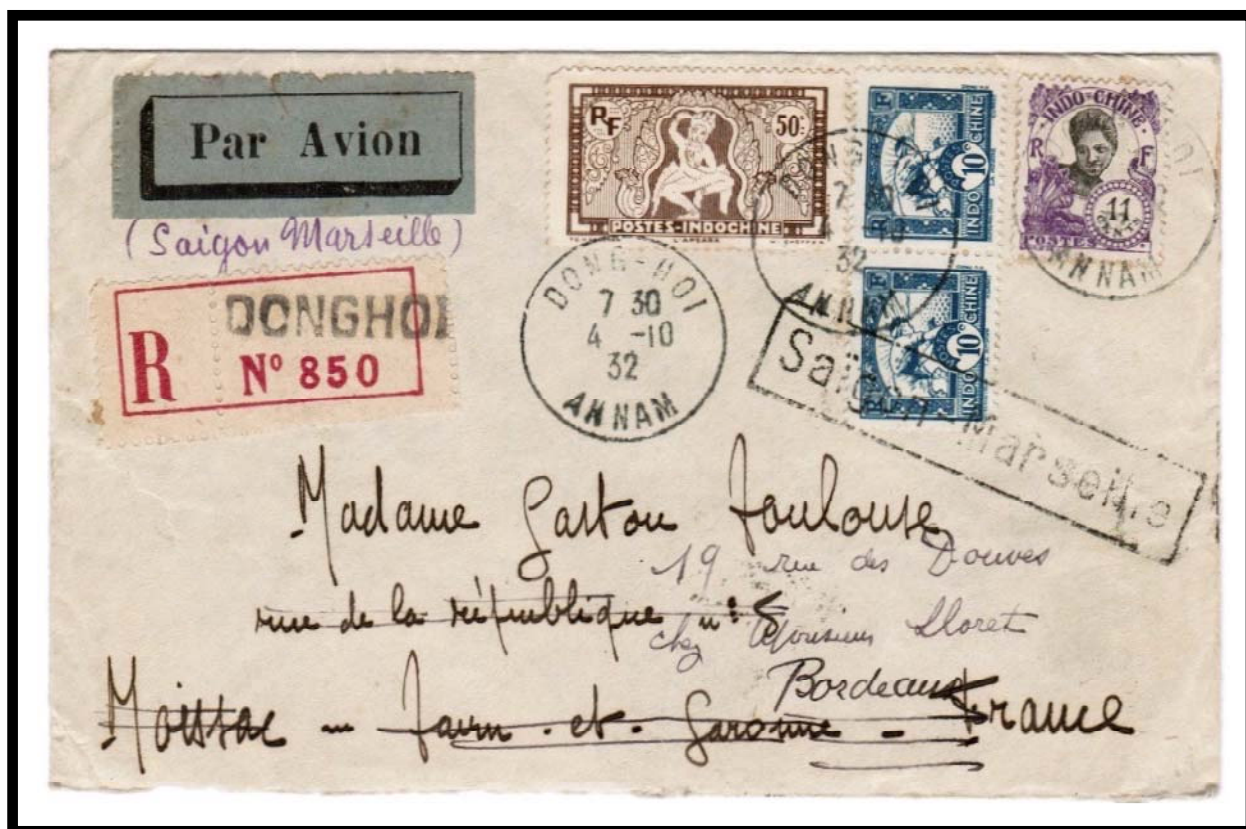 Par Avion
(Saigon Marseille)
R
DONGHOI
N° 850
RF
50c
POSTES-INDOCHINE
RF
INDOCHINE
10c
RF
INDOCHINE
10c
INDO-CHINE
R F
11
CENTS
POSTES
DONG-HOI
7 30
4 -10
32
ANNAM
7 30
32
ANNAM
ANNAM
Saïgon-Marseille
Madame Gaston Toulouse
19 rue des Douves
rue de la république n: 5
chez Monsieur Lloret
Bordeaux
Moissac - Tarn-et-Garonne - France